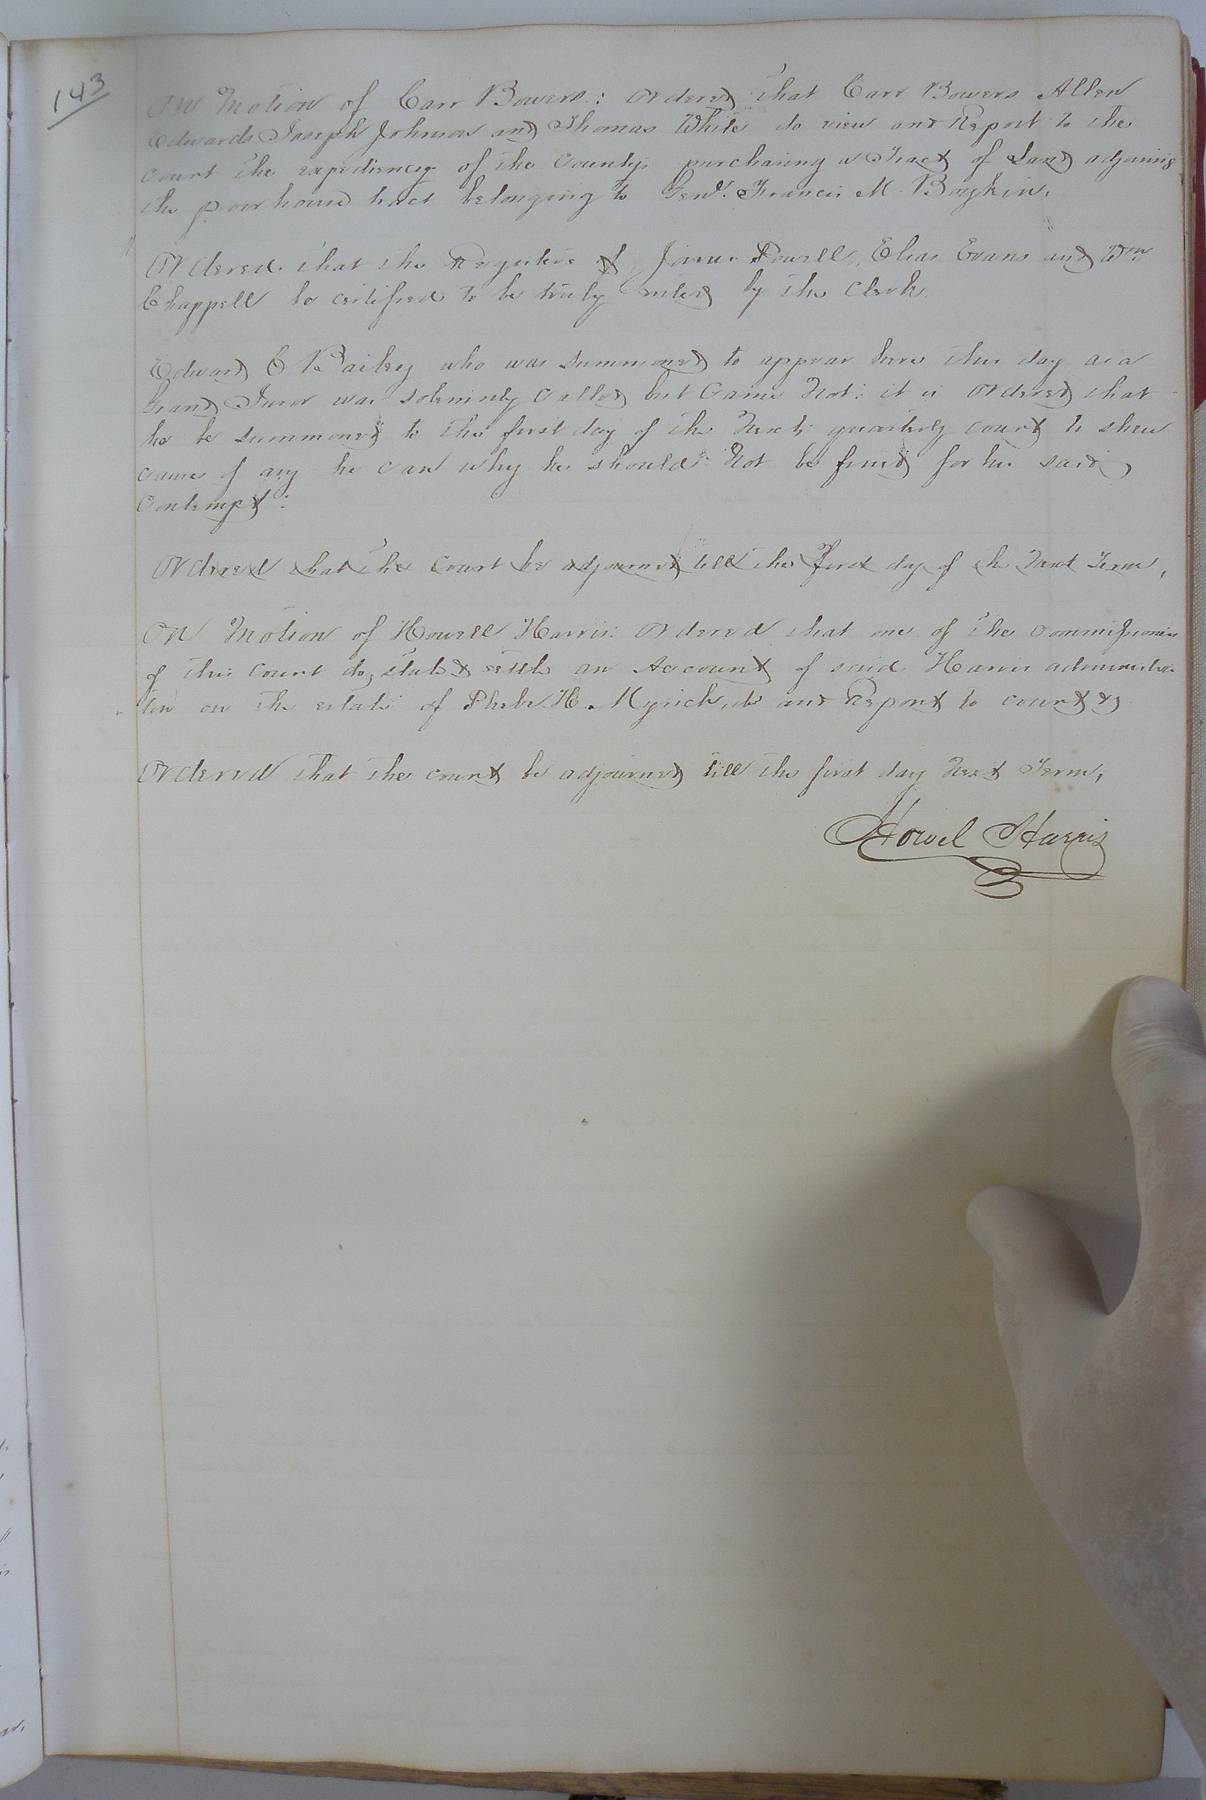 143
On Motion of Carr Bowers: Ordered that Carr Bowers Allen
Edwards Joseph Johnson and Thomas White do view and Report to the
Court the expediency of the County purchasing a Tract of Land adjoining
the poor house tract belonging to Genl. Francis M. Boykin.
Ordered that the Register of James Powell, Elias Evans and Wm
Chappell be certified to be truly made by the Clerk.
Edward C Bailey who was summoned to appear here this day as a
Grand Juror was solemnly called but Came Not: it is Ordered that
he be summoned to the first day of the Next quarterly court to shew
cause if any he can why he should Not be fined for his said
Contempt:
Ordered that the Court be adjourned till the First day of the Next Term,
On Motion of Howell Harris: Ordered that one of the Commissioners
of this Court do, state & settle an Account of said Harris administra
tion on the estate of Phebe H. Myrick, and Report to court &
Ordered that the court be adjourned till the first day Next Term,
Howel Harris